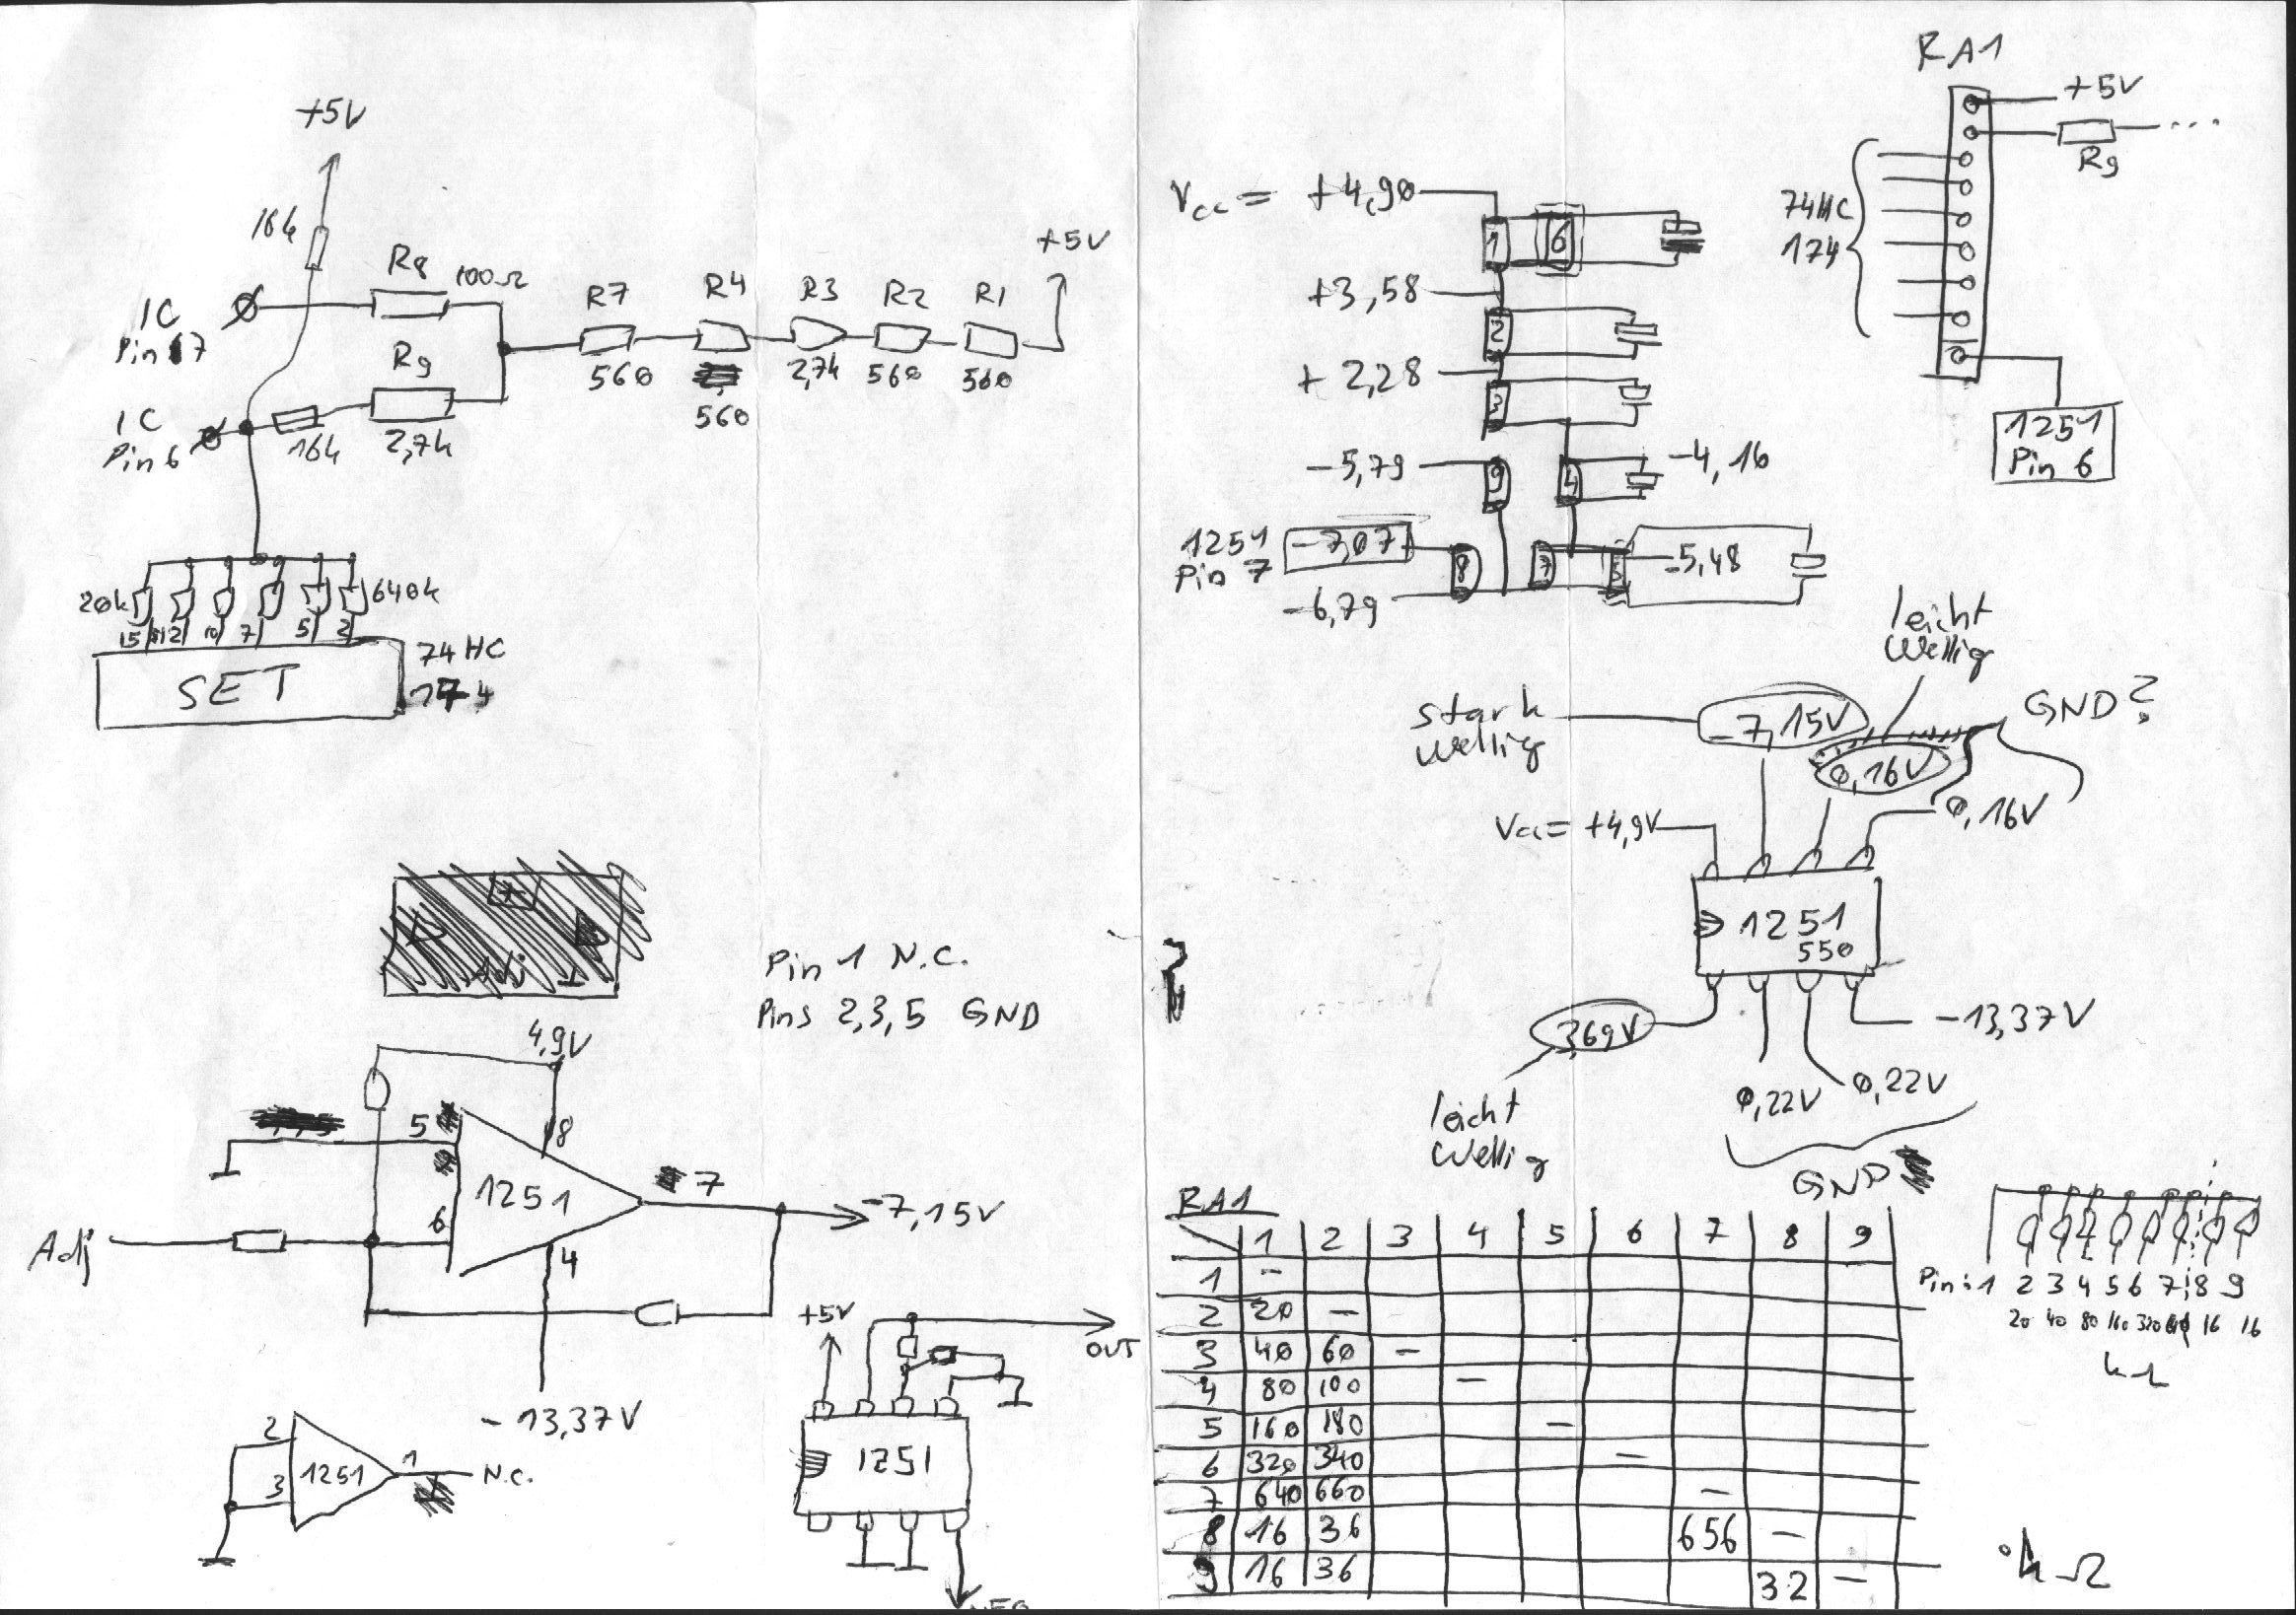 +5V
16k
R8
100Ω
IC
Pin 7
R9
IC
Pin 6
16k
2,7k
R7
560
R4
560
R3
2,7k
R2
560
R1
560
+5V
20k
640k
15 12 10 7 5 2
SET
74HC
174
Adj
Pin 1 N.C.
Pins 2,3,5 GND
4,9V
5
8
1251
7
-7,15V
6
4
Adj
-13,37V
2
3
1251
1
N.C.
+5V
OUT
1251
RA1
+5V
R9
...
74HC
174
1251
Pin 6
Vcc = +4,90
1
6
+3,58
2
+2,28
3
-5,79
9
4
-4,16
1251
Pin 7
-7,07
8
7
5
-5,48
-6,79
leicht
wellig
stark
wellig
-7,15V
GND?
0,16V
0,16V
Vcc = +4,9V
1251
550
3,69V
-13,37V
leicht
wellig
0,22V
0,22V
GND
RA1
1 2 3 4 5 6 7 8 9
1 -
2 20 -
3 40 60 -
4 80 100 -
5 160 180 -
6 320 340 -
7 640 660 -
8 16 36 656 -
9 16 36 32 -
Pin: 1 2 3 4 5 6 7 8 9
20 40 80 160 320 640 16 16
kΩ
kΩ